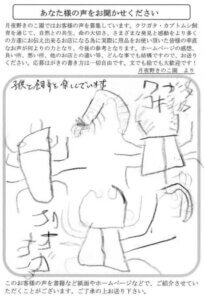 あなた様の声をお聞かせください
月夜野きのこ園ではお客様の声を募集しています。クワガタ・カブトムシ飼
育を通じて、自然との共生、命の大切さ、さまざまな発見と感動をより多く
の方達にお伝え出来るお店になる為に実際に用品をお使い頂いた皆様の率直
なお声が何よりの力となり、今後の参考となります。ホームページの感想、
良い所、悪い所、他のお店との違い等、どんな事でも結構ですので、お送り
下さい。応募はがきの書き方は一切自由です。文でも絵でも大歓迎です！
月夜野きのこ園 より
このお客様の声を書籍など紙面やホームページなどで、ご紹介させてい
ただくことがございます。ご了承の上お送り下さい。